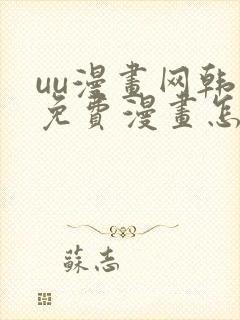 uu漫畫网韩
免費漫畫怎
蘇志